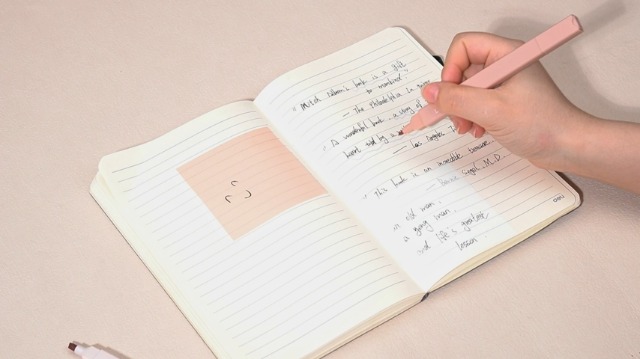 Mitch Albom's book is a gift
to mankind.
— The Philadelphia In
A wonderful book, a story of
heart told by a
— Los Angeles
This book is an incredible treasure.
— Bernie Siegel, M.D.
An old man,
a young man,
and life's greatest
lesson